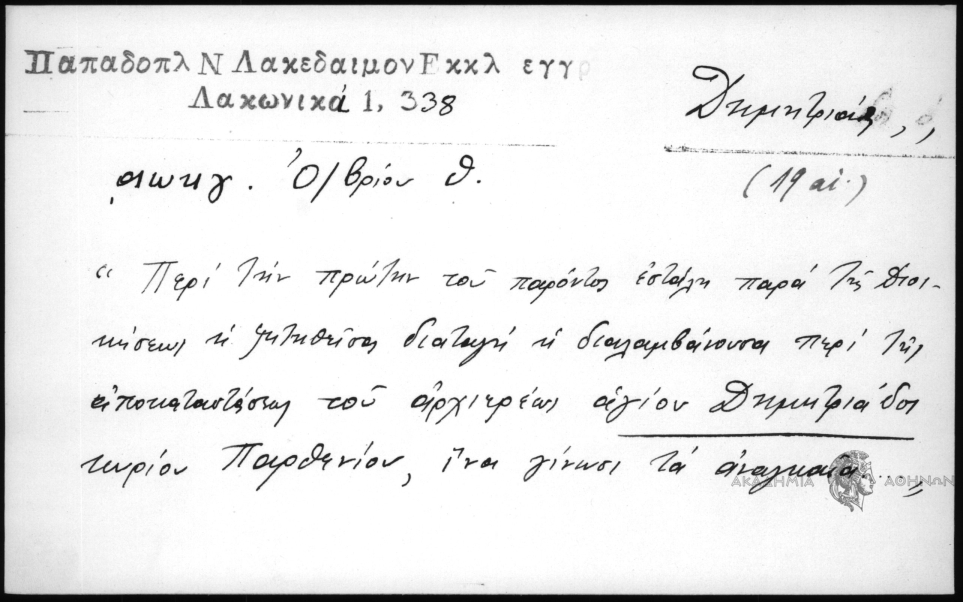 Παπαδοπλ Ν ΛακεδαιμονΕκκλ εγγρ
Λακωνικά 1, 338
Δημητριάς, ,
(19 αἰ.)
αωκγ. Ὀ/βρίου θ.
“ Περί τήν πρώτην τοῦ παρόντος ἐστάλη παρά τῆς Διοι-
κήσεως ἡ ζητηθεῖσα διαταγή ἡ διαλαμβάνουσα περί τῆς
ἀποκαταστάσεως τοῦ ἀρχιερέως ἁγίου Δημητριάδος
κυρίου Παρθενίου, ἵνα γίνωσι τά ἀναγκαῖα....„
ΑΚΑΔΗΜΙΑ ΑΘΗΝΩΝ